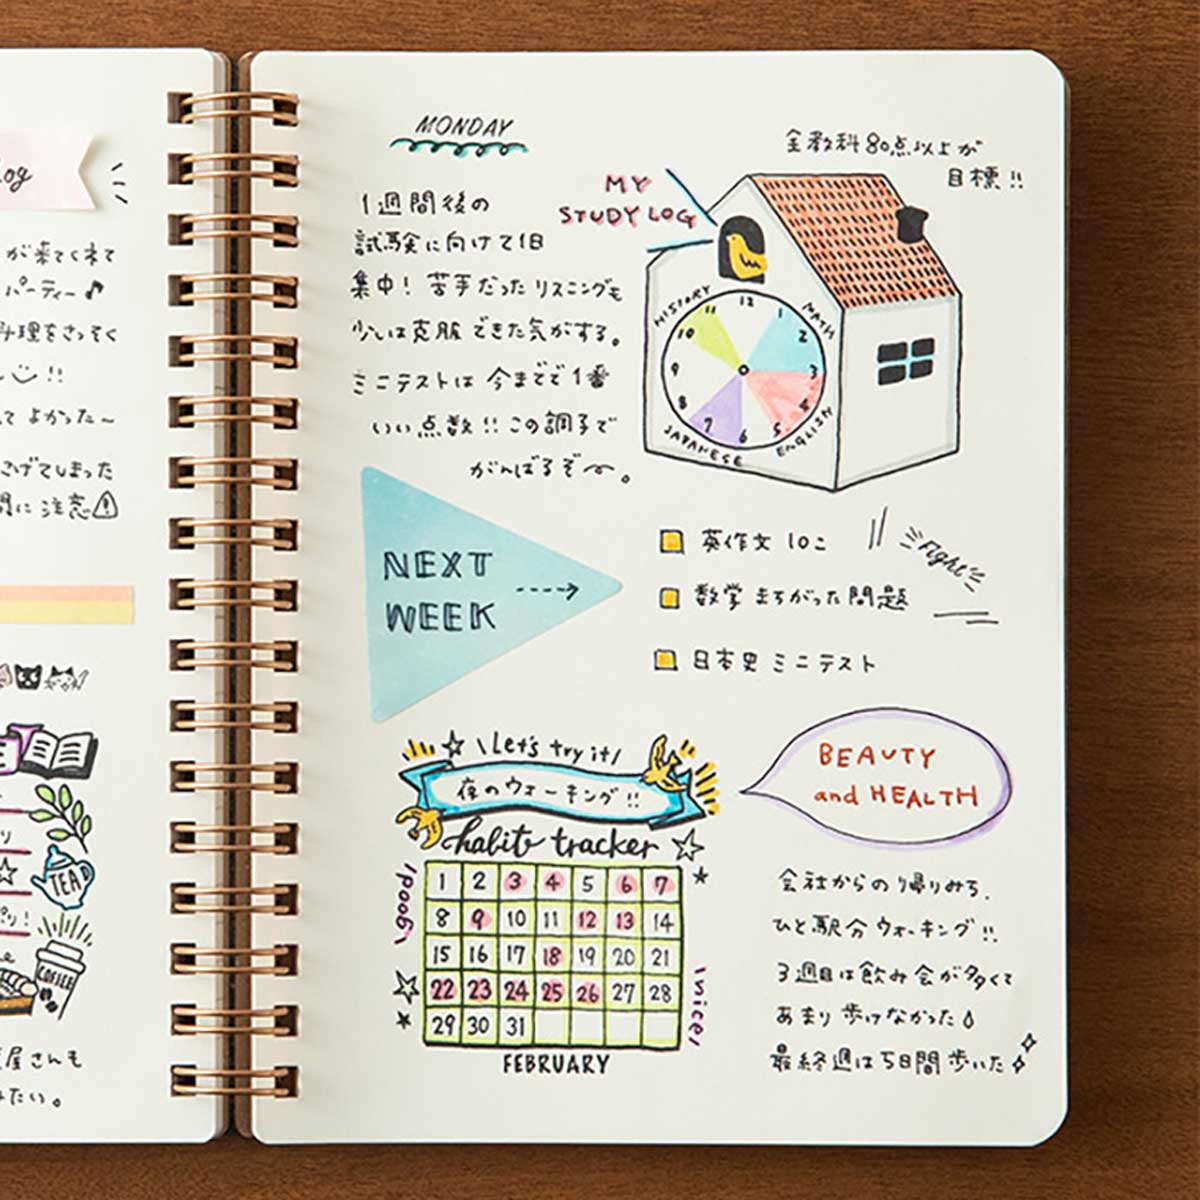 log
が来てくれて
パーティー♪
料理をさっそく
!!
てよかった〜
さげてしまった
間に注意
TEA
COFFEE
屋さんも
みたい。
MONDAY
1週間後の
試験に向けて1日
集中! 苦手だったリスニングも
少しは克服できた気がする。
ミニテストは今までで1番
いい点数!! この調子で
がんばるぞー。
全教科80点以上が
目標!!
MY
STUDY LOG
HISTORY
MATH
ENGLISH
JAPANESE
12
1
2
3
4
5
6
7
8
9
10
11
NEXT
WEEK
英作文10こ
数学まちがった問題
日本史ミニテスト
Fight
\Let's try it/
夜のウォーキング!!
habit tracker
1 2 3 4 5 6 7
8 9 10 11 12 13 14
15 16 17 18 19 20 21
22 23 24 25 26 27 28
29 30 31
FEBRUARY
/good/
\nice/
BEAUTY
and HEALTH
会社からの帰りみち、
ひと駅分ウォーキング!!
3週目は飲み会が多くて
あまり歩けなかった
最終週は5日間歩いた